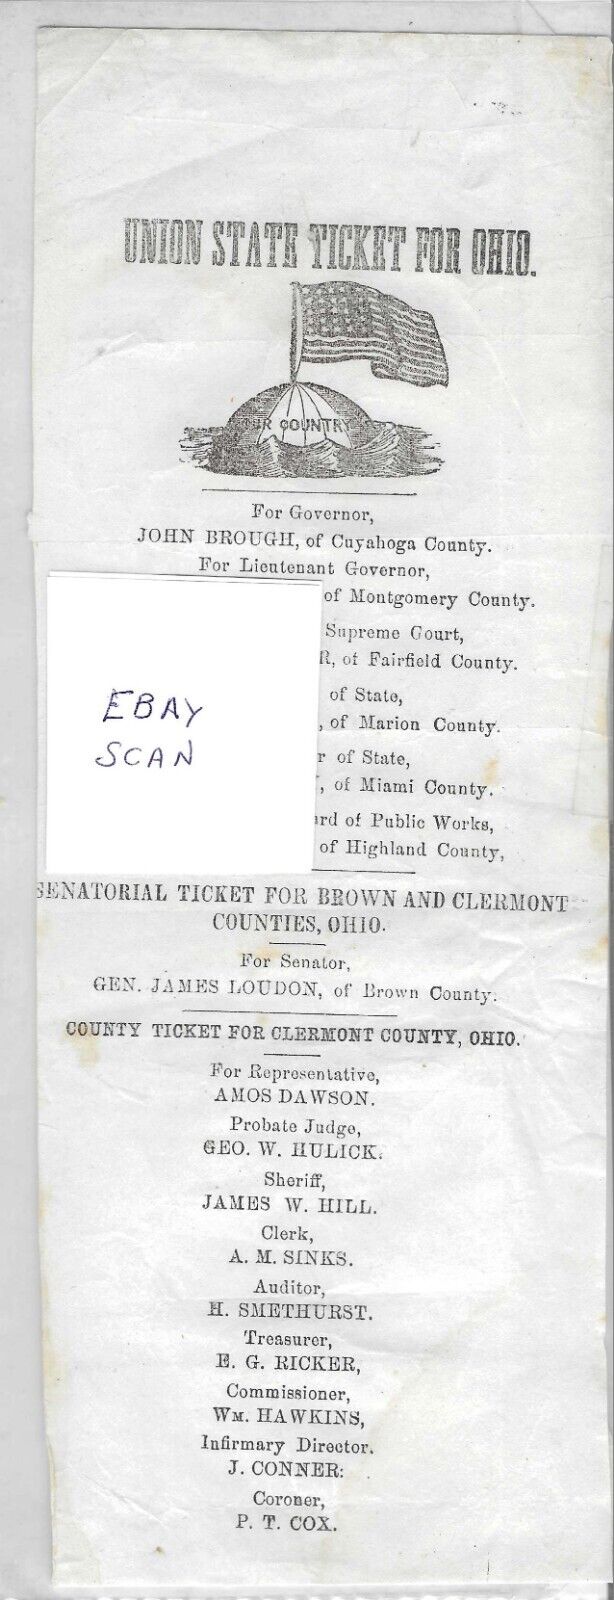 UNION STATE TICKET FOR OHIO.
OUR COUNTRY
For Governor,
JOHN BROUGH, of Cuyahoga County.
For Lieutenant Governor,
of Montgomery County.
Supreme Court,
R, of Fairfield County.
of State,
, of Marion County.
r of State,
, of Miami County.
ard of Public Works,
of Highland County,
EBAY
SCAN
SENATORIAL TICKET FOR BROWN AND CLERMONT
COUNTIES, OHIO.
For Senator,
GEN. JAMES LOUDON, of Brown County.
COUNTY TICKET FOR CLERMONT COUNTY, OHIO.
For Representative,
AMOS DAWSON.
Probate Judge,
GEO. W. HULICK.
Sheriff,
JAMES W. HILL.
Clerk,
A. M. SINKS.
Auditor,
H. SMETHURST.
Treasurer,
E. G. RICKER,
Commissioner,
WM. HAWKINS,
Infirmary Director.
J. CONNER:
Coroner,
P. T. COX.